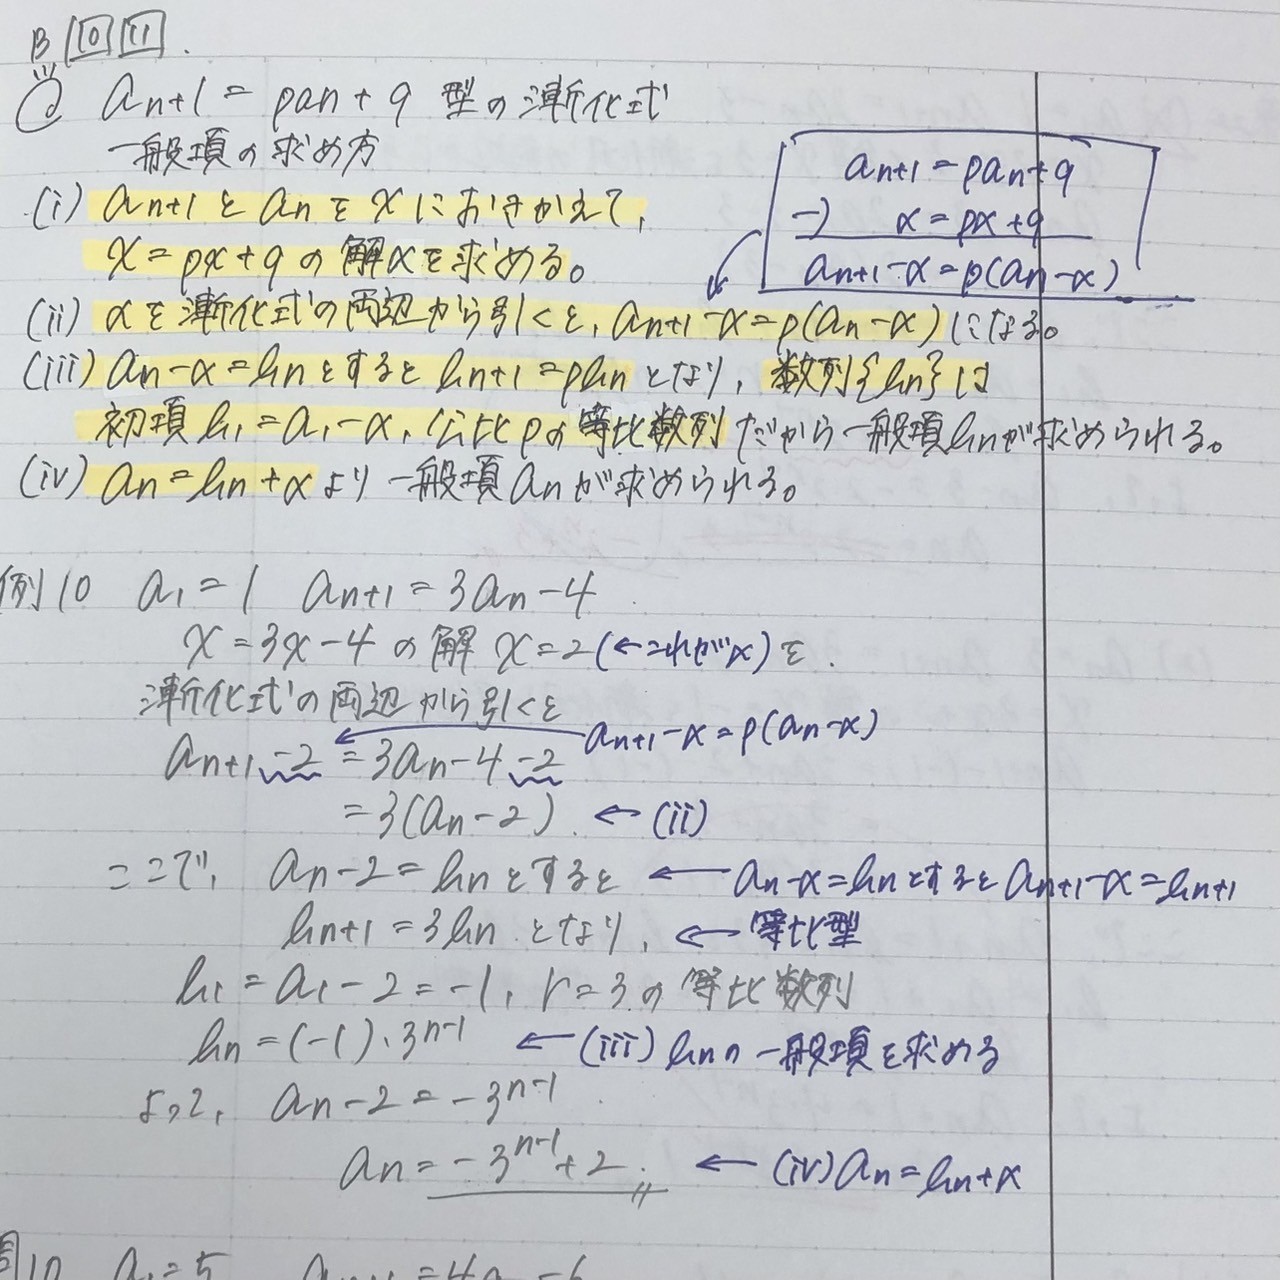 B 10 11.
◎ an+1 = pan+q 型の漸化式
一般項の求め方
an+1 = pan+q
-) α = pα+q
an+1-α = p(an-α)
(i) an+1とanをxにおきかえて,
x = px+qの解αを求める。
(ii) αを漸化式の両辺から引くと, an+1-α = p(an-α)になる。
(iii) an-α = bnとするとbn+1 = pbnとなり, 数列{bn}は
初項b1 = a1-α, 公比pの等比数列だから一般項bnが求められる。
(iv) an = bn+αより一般項anが求められる。
例10 a1 = 1 an+1 = 3an-4
x = 3x-4の解 x = 2 (←これがα)を
漸化式の両辺から引くと
an+1-α = p(an-α)
an+1-2 = 3an-4-2
= 3(an-2) ← (ii)
ここで, an-2 = bnとすると ← an-α = bnとするとan+1-α = bn+1
bn+1 = 3bnとなり, ← 等比型
b1 = a1-2 = -1, r = 3の等比数列
bn = (-1)・3^n-1 ← (iii) bnの一般項を求める
よって, an-2 = -3^n-1
an = -3^n-1+2 〃 ← (iv) an = bn+α
問10 a1 = 5 an+1 = 4an-6